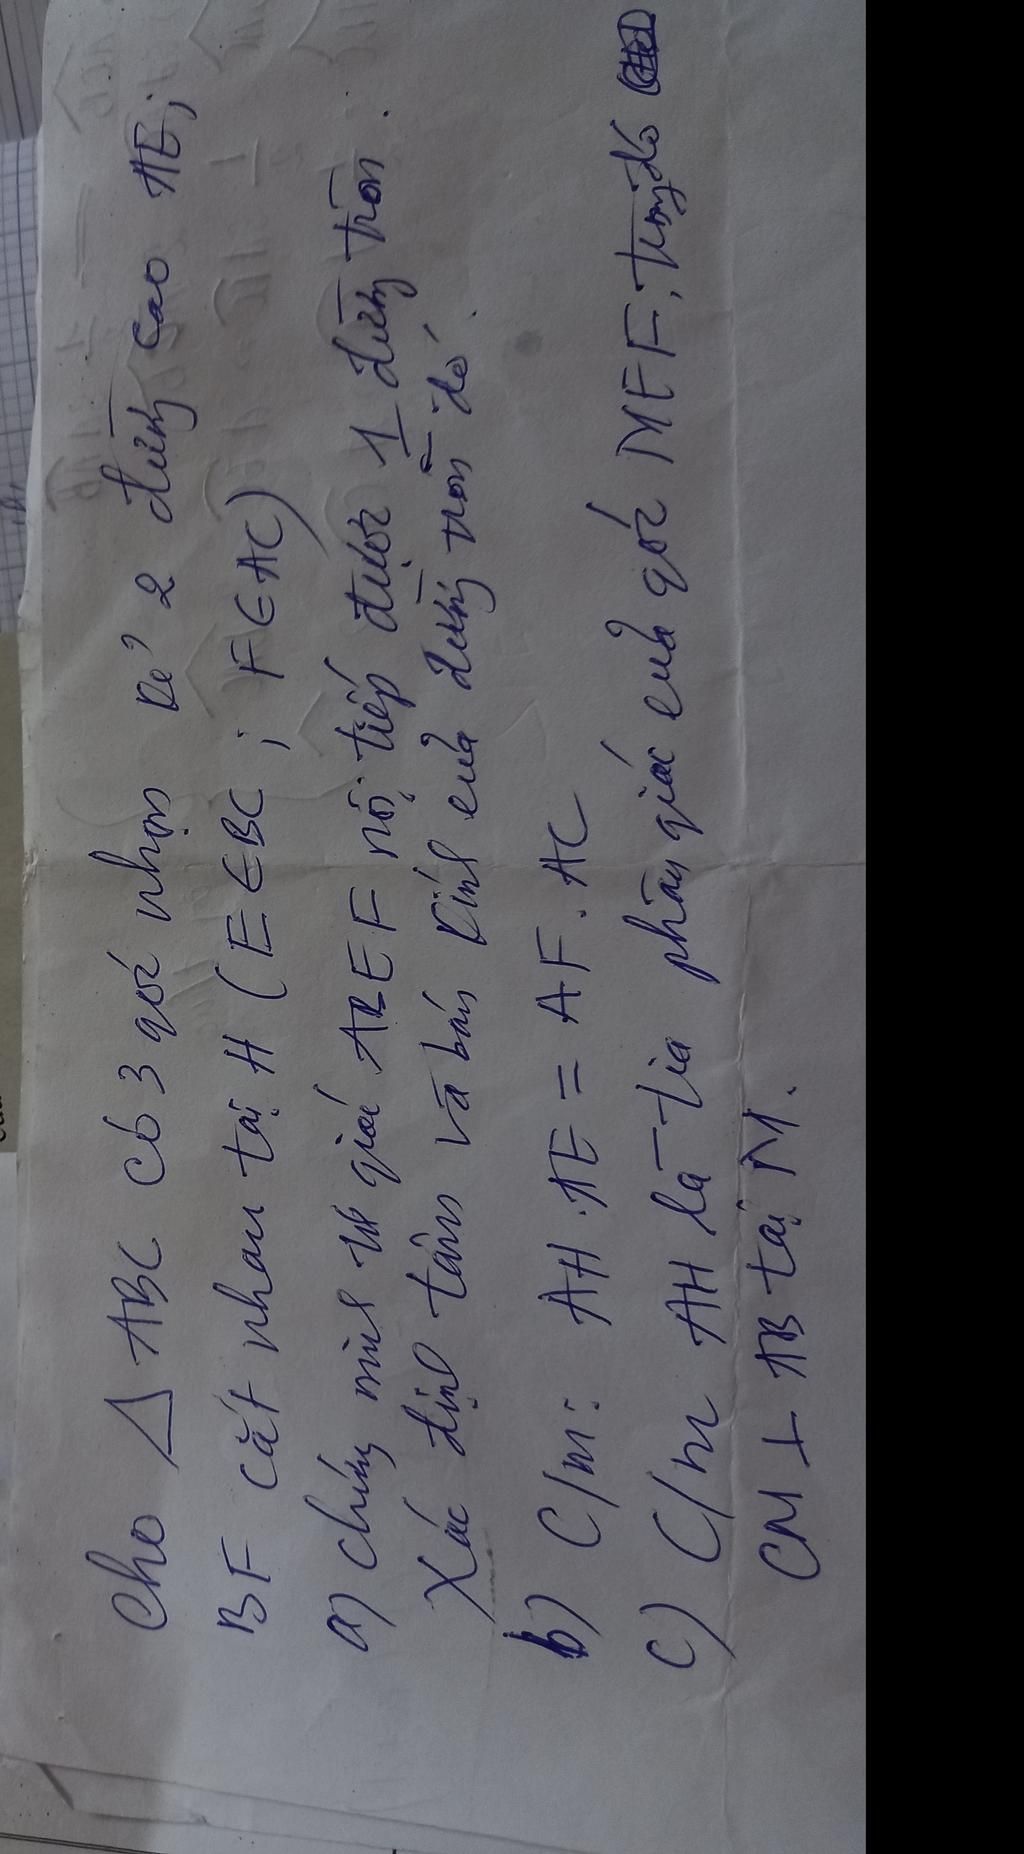 Cho Δ ABC có 3 góc nhọn kẻ 2 đường cao AE;
BF cắt nhau tại H (E ∈ BC ; F ∈ AC)
a) Chứng minh tứ giác ABEF nội tiếp được 1 đường tròn.
Xác định tâm và bán kính của đường tròn đó.
b) C/m: AH.AE = AF.AC
c) C/m AH là tia phân giác của góc MEF, trong đó
CM ⊥ AB tại M.